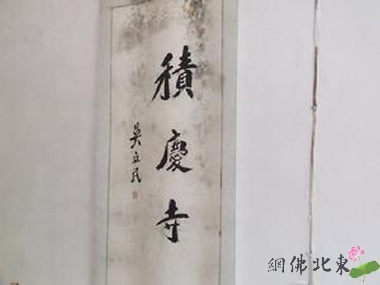 積慶寺
吳立民
網佛北東